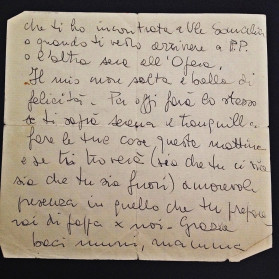 che ti ho incontrata a Vle Somalia
o quando ti vedo arrivare a P.P.
o l'altra sera all'Opera.
Il mio cuore salta e balla di
felicità. Per oggi farà lo stesso
e ti saprà serena e tranquilla
fare le tue cose questa mattina
e se ti troverà (sia che tu ci sia
sia che tu sia fuori) amorevole
presenza in quello che tu prepare
rai di pappa x noi. Grazie
baci mamma